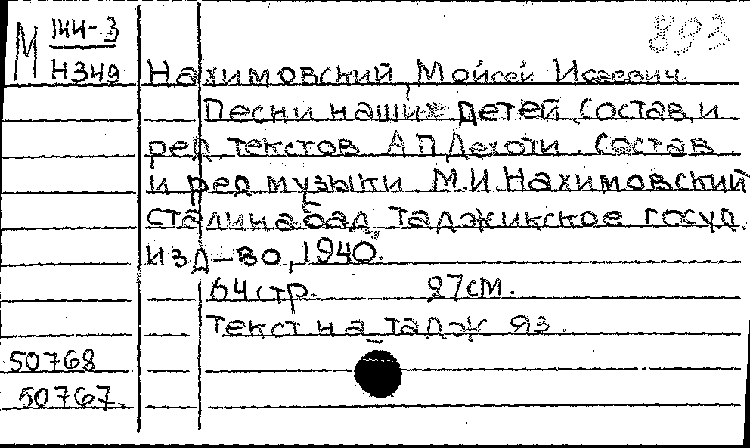 М 144-3 893
Н349 Нахимовский, Мойсей Исаевич
Песни наших детей. Состав. и
ред. текстов А П Дехоти. Состав.
и ред. музыки М.И. Нахимовский
Сталинабад, Таджикское госуд.
изд-во, 1940.
64 стр. 27 см.
Текст на тадж. яз.
50768
50767.